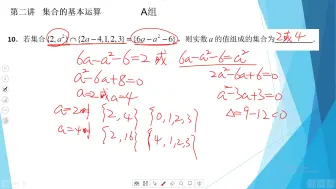 第二讲 集合的基本运算 A组
10. 若集合{2,a²}∩{2a-4,1,2,3}={6a-a²-6}，则实数a的值组成的集合为 2或4 .
6a-a²-6=2 或 6a-a²-6=a²
a²-6a+8=0 2a²-6a+6=0
a=2或a=4 a²-3a+3=0
a=2时 {2,4} {0,1,2,3} Δ=9-12<0
a=4时 {2,16} {4,1,2,3}